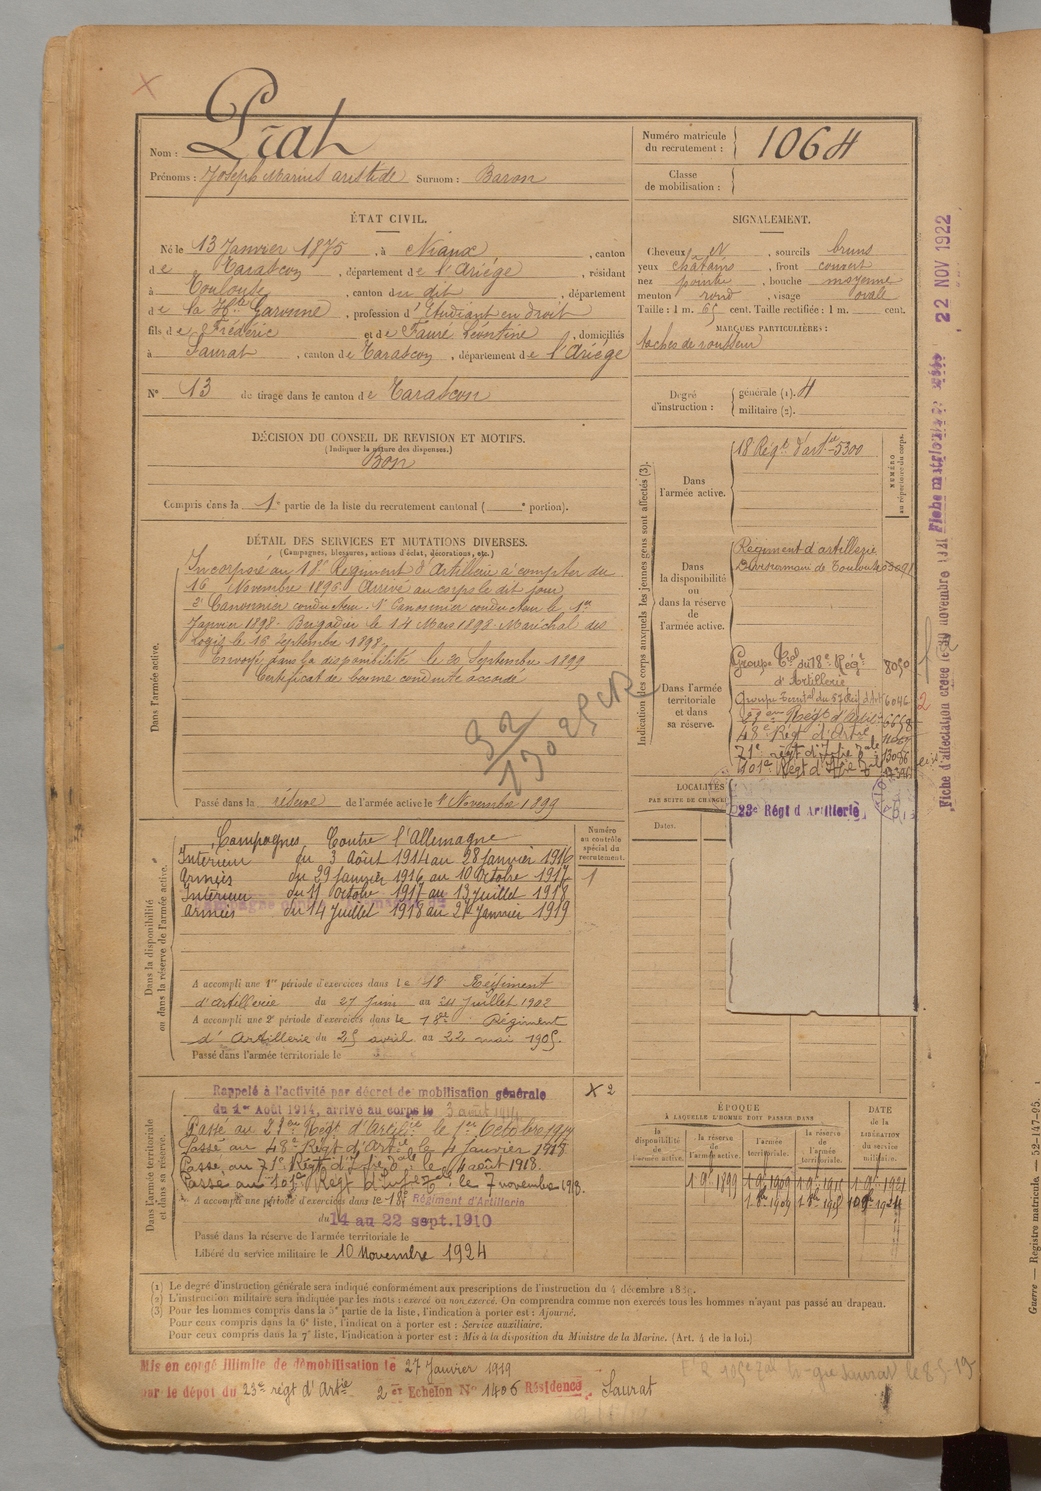 Nom : Prat
Prénoms : Joseph Marius aristide Surnom : Baron
Numéro matricule du recrutement : 1064
Classe de mobilisation :
ÉTAT CIVIL.
Né le 13 Janvier 1875, à Niaux, canton
de Tarascon, département de l'Ariège, résidant
à Toulouse, canton du dit, département
de la Hte Garonne, profession d'Etudiant en droit
fils de Frédéric et de Fauré Léontine, domiciliés
à Saurat, canton de Tarascon, département de l'Ariège
N° 13 de tirage dans le canton de Tarascon
SIGNALEMENT.
Cheveux , sourcils bruns
yeux châtains, front couvert
nez pointu, bouche moyenne
menton rond, visage ovale
Taille : 1 m. 65 cent. Taille rectifiée : 1 m. cent.
MARQUES PARTICULIÈRES :
taches de rousseur
Degré d'instruction : générale (1). 4
militaire (2).
DÉCISION DU CONSEIL DE REVISION ET MOTIFS.
(Indiquer la nature des dispenses.)
Bon
Compris dans la 1e partie de la liste du recrutement cantonal ( e portion).
DÉTAIL DES SERVICES ET MUTATIONS DIVERSES.
(Campagnes, blessures, actions d'éclat, décorations, etc.)
Dans l'armée active.
Incorporé au 18e Régiment d'Artillerie à compter du
16 Novembre 1896 Arrivé au corps le dit jour
2e Canonnier conducteur. 1er Canonnier conducteur le 1er
Janvier 1898. Brigadier le 14 Mars 1898. Maréchal des
Logis le 16 septembre 1898.
Envoyé dans la disponibilité le 20 Septembre 1899
Certificat de bonne conduite accordé
Passé dans la réserve de l'armée active le 1er Novembre 1899
Indication des corps auxquels les jeunes gens sont affectés (3).
NUMÉRO au répertoire du corps.
Dans l'armée active.
18 Régt d'art ie 5300
Dans la disponibilité ou dans la réserve de l'armée active.
Régiment d'artillerie
Divisionnaire de Toulouse
Dans l'armée territoriale et dans sa réserve.
Groupe Tal du 18e Régt 8050
d'Artillerie
Groupe Territal du 57 Régt d'Art 6046
48e Régt d'Artie
71e régt d'Infie Tale 13096
101e Régt d'Infie Tale
23e Régt d'Artillerie
LOCALITÉS
PAR SUITE DE CHANGE
Dates.
Fiche d'affectation créée le 30 novembre
Fiche matricule
22 NOV 1922
Dans la disponibilité ou dans la réserve de l'armée active.
Numéro au contrôle spécial du recrutement.
1
Campagnes Contre l'Allemagne
Intérieur du 3 Août 1914 au 28 Janvier 1916
Armées du 29 Janvier 1916 au 10 Octobre 1917
Intérieur du 11 Octobre 1917 au 13 Juillet 1918
Armées du 14 Juillet 1918 au Janvier 1919
A accompli une 1re période d'exercices dans le 18 Régiment
d'artillerie du 27 Juin au 24 Juillet 1902
A accompli une 2e période d'exercices dans le 18e Régiment
d'Artillerie du 25 avril au 22 mai 1905.
Passé dans l'armée territoriale le
Dans l'armée territoriale et dans sa réserve.
Rappelé à l'activité par décret de mobilisation générale
du 1er Août 1914, arrivé au corps le 3 août 1914
Passé au Régt d'Artillie le 1er Octobre 1917
Passé au 48e Régt d'Artie le 4 Janvier 1918.
Passé au 71e Régt d'Infie Tale le 4 août 1918.
Passé au 101e Régt d'Inf Tale le 7 novembre 1918.
X 2
A accompli une période d'exercices dans le 18e Régiment d'Artillerie
du 14 au 22 sept. 1910
Passé dans la réserve de l'armée territoriale le
Libéré du service militaire le 10 Novembre 1924
ÉPOQUE
À LAQUELLE L'HOMME DOIT PASSER DANS
DATE de la LIBÉRATION du service militaire.
la disponibilité de l'armée active.
la réserve de l'armée active.
l'armée territoriale.
la réserve de l'armée territoriale.
1 9bre 1899 1 9bre 1909 1 9bre 1915 1 9bre 1921
(1) Le degré d'instruction générale sera indiqué conformément aux prescriptions de l'instruction du 4 décembre 1889.
(2) L'instruction militaire sera indiquée par les mots : exercé ou non exercé. On comprendra comme non exercés tous les hommes n'ayant pas passé au drapeau.
(3) Pour les hommes compris dans la 5e partie de la liste, l'indication à porter est : Ajourné.
Pour ceux compris dans la 6e liste, l'indication à porter est : Service auxiliaire.
Pour ceux compris dans la 7e liste, l'indication à porter est : Mis à la disposition du Ministre de la Marine. (Art. 4 de la loi.)
Mis en congé illimité de démobilisation le 27 Janvier 1919
par le dépôt du 23e régt d'Artie 2e Echelon N° 1406 Résidence Saurat
Guerre — Registre matricule. — 52-147-95.